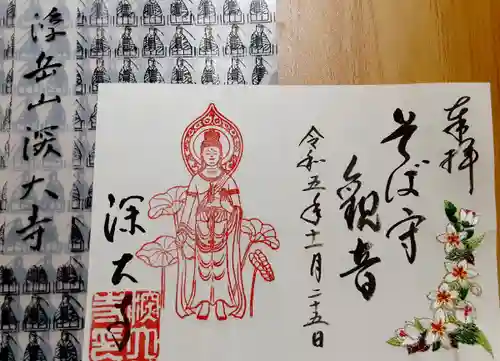 奉拝
そば守
観音
令和五年十一月二五日
深大寺
浮岳山深大寺